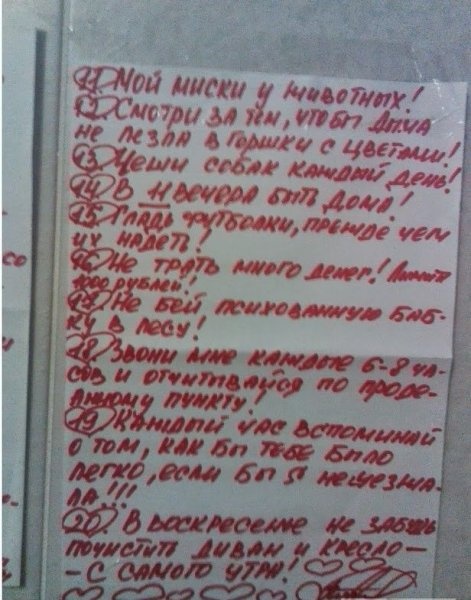 11. Мой миски у животных!
12. Смотри за тем, чтобы Дыма
не лезла в горшки с цветами!
13. Чеши собак каждый день!
14. В 11 вечера быть дома!
15. Гладь футболки, прежде чем
их надеть!
16. Не трать много денег! Лимит
1000 рублей!
17. Не бей психованную баб-
ку в лесу!
18. Звони мне каждые 6-8 ча-
сов и отчитывайся по проде-
ланному пункту!
19. Каждый час вспоминай
о том, как бы тебе было
легко, если бы я не уезжа-
ла!!!
20. В воскресенье не забудь
почистить диван и кресло -
- с самого утра!